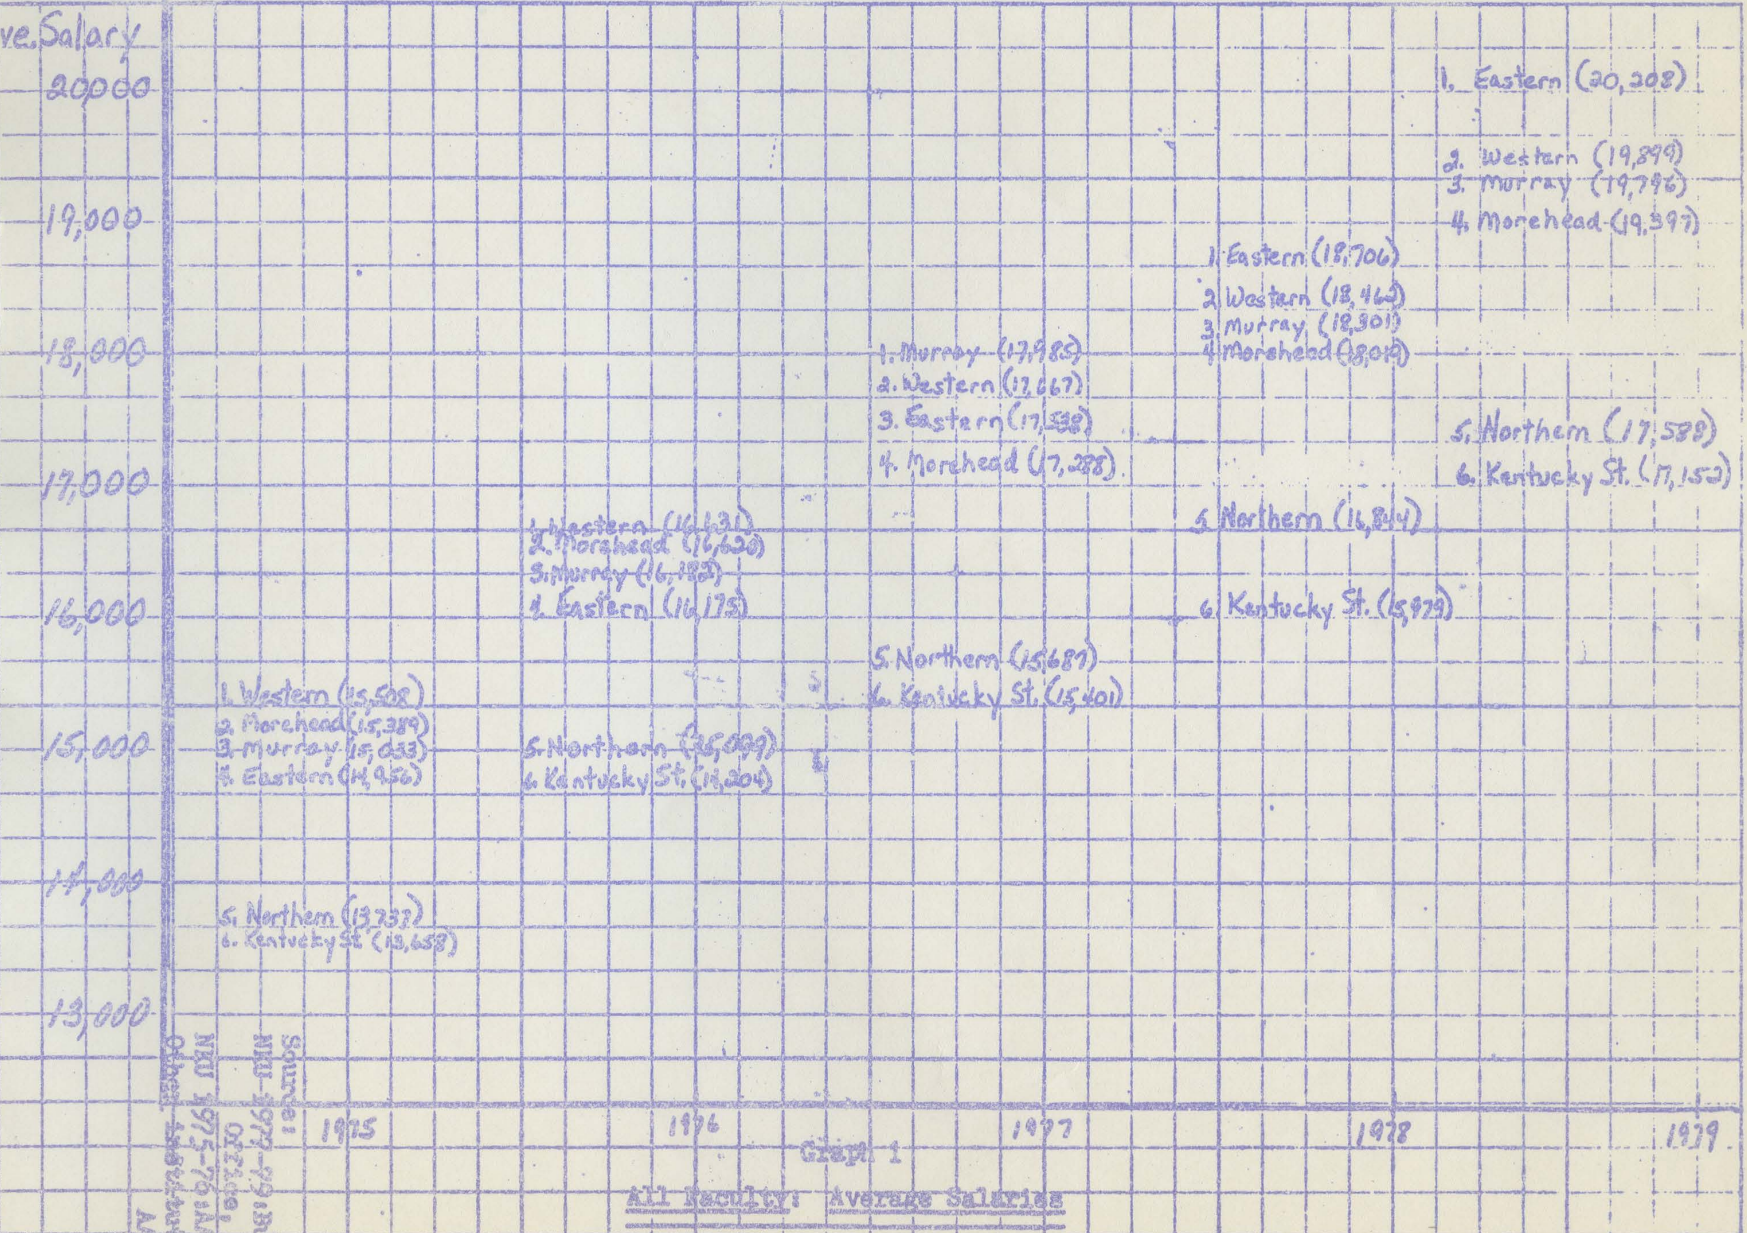 ve. Salary
20,000
19,000
18,000
17,000
16,000
15,000
14,000
13,000
1. Western (15,508)
2. Morehead (15,389)
3. Murray (15,033)
4. Eastern (14,956)
5. Northern (13,737)
6. Kentucky St. (13,658)
1. Western (16,631)
2. Morehead (16,620)
3. Murray
4. Eastern (16,175)
5. Northern (15,099)
6. Kentucky St. (14,204)
1. Murray (17,985)
2. Western (17,667)
3. Eastern
4. Morehead (17,288)
5. Northern (15,687)
6. Kentucky St. (15,401)
1. Eastern (18,706)
2. Western (18,462)
3. Murray (18,301)
4. Morehead (18,019)
5. Northern (16,844)
6. Kentucky St. (15,979)
1. Eastern (20,208)
2. Western (19,899)
3. Murray (19,796)
4. Morehead (19,397)
5. Northern (17,588)
6. Kentucky St. (17,152)
1975
1976
1977
1978
1979
Graph 1
All Faculty: Average Salaries
Source:
NKU 1977-79:
Office,
NKU 1975-76:
Other